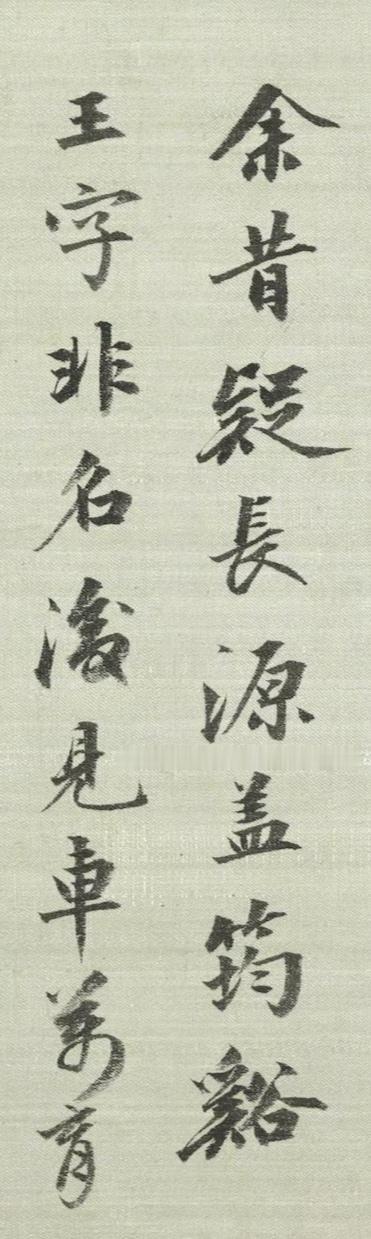 余昔疑長源盖筠谿
王字非名浚見車萬育